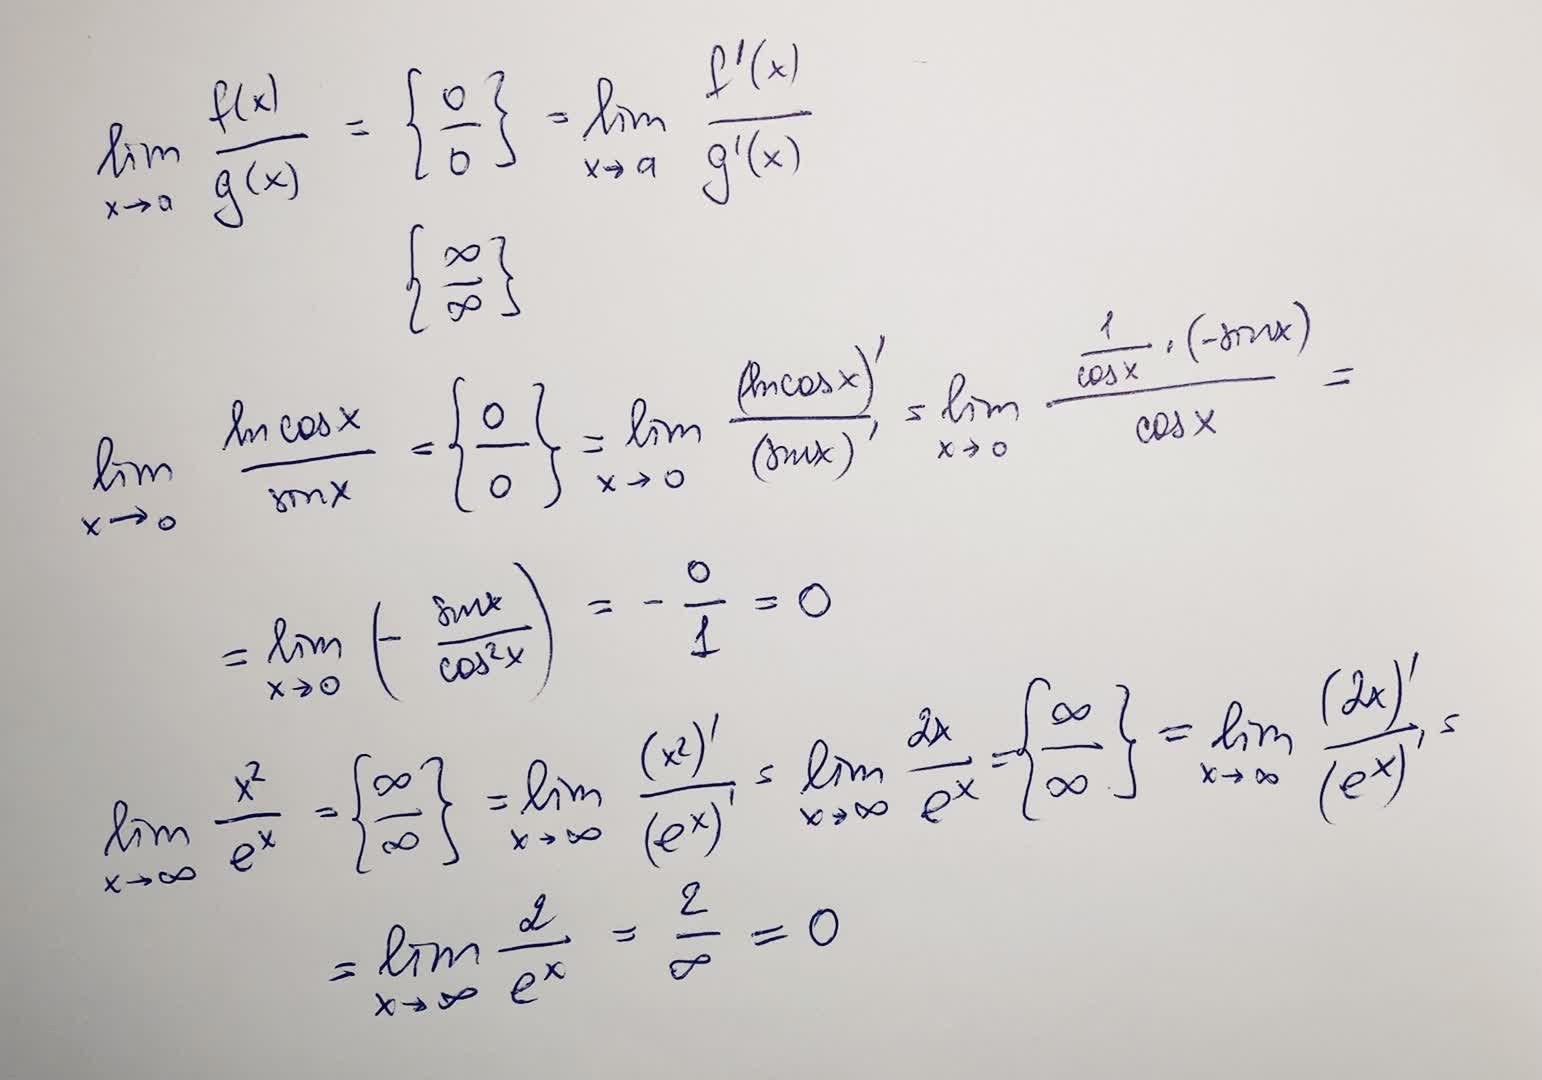 lim x→a f(x)/g(x) = {0/0} = lim x→a f'(x)/g'(x)
{∞/∞}
lim x→0 ln cos x / sin x = {0/0} = lim x→0 (ln cos x)' / (sin x)' = lim x→0 (1/cos x · (-sin x)) / cos x =
= lim x→0 (- sin x / cos²x) = - 0/1 = 0
lim x→∞ x²/eˣ = {∞/∞} = lim x→∞ (x²)'/(eˣ)' = lim x→∞ 2x/eˣ = {∞/∞} = lim x→∞ (2x)'/(eˣ)' =
= lim x→∞ 2/eˣ = 2/∞ = 0